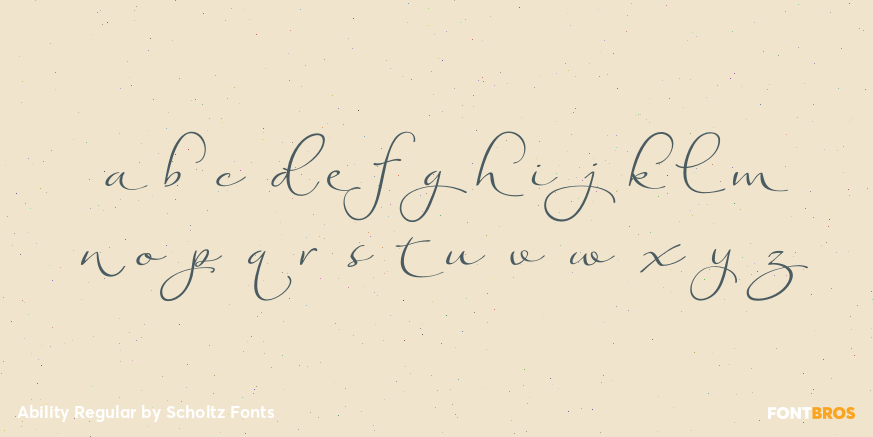 a b c d e f g h i j k l m
n o p q r s t u v w x y z
Ability Regular by Scholtz Fonts
FONTBROS